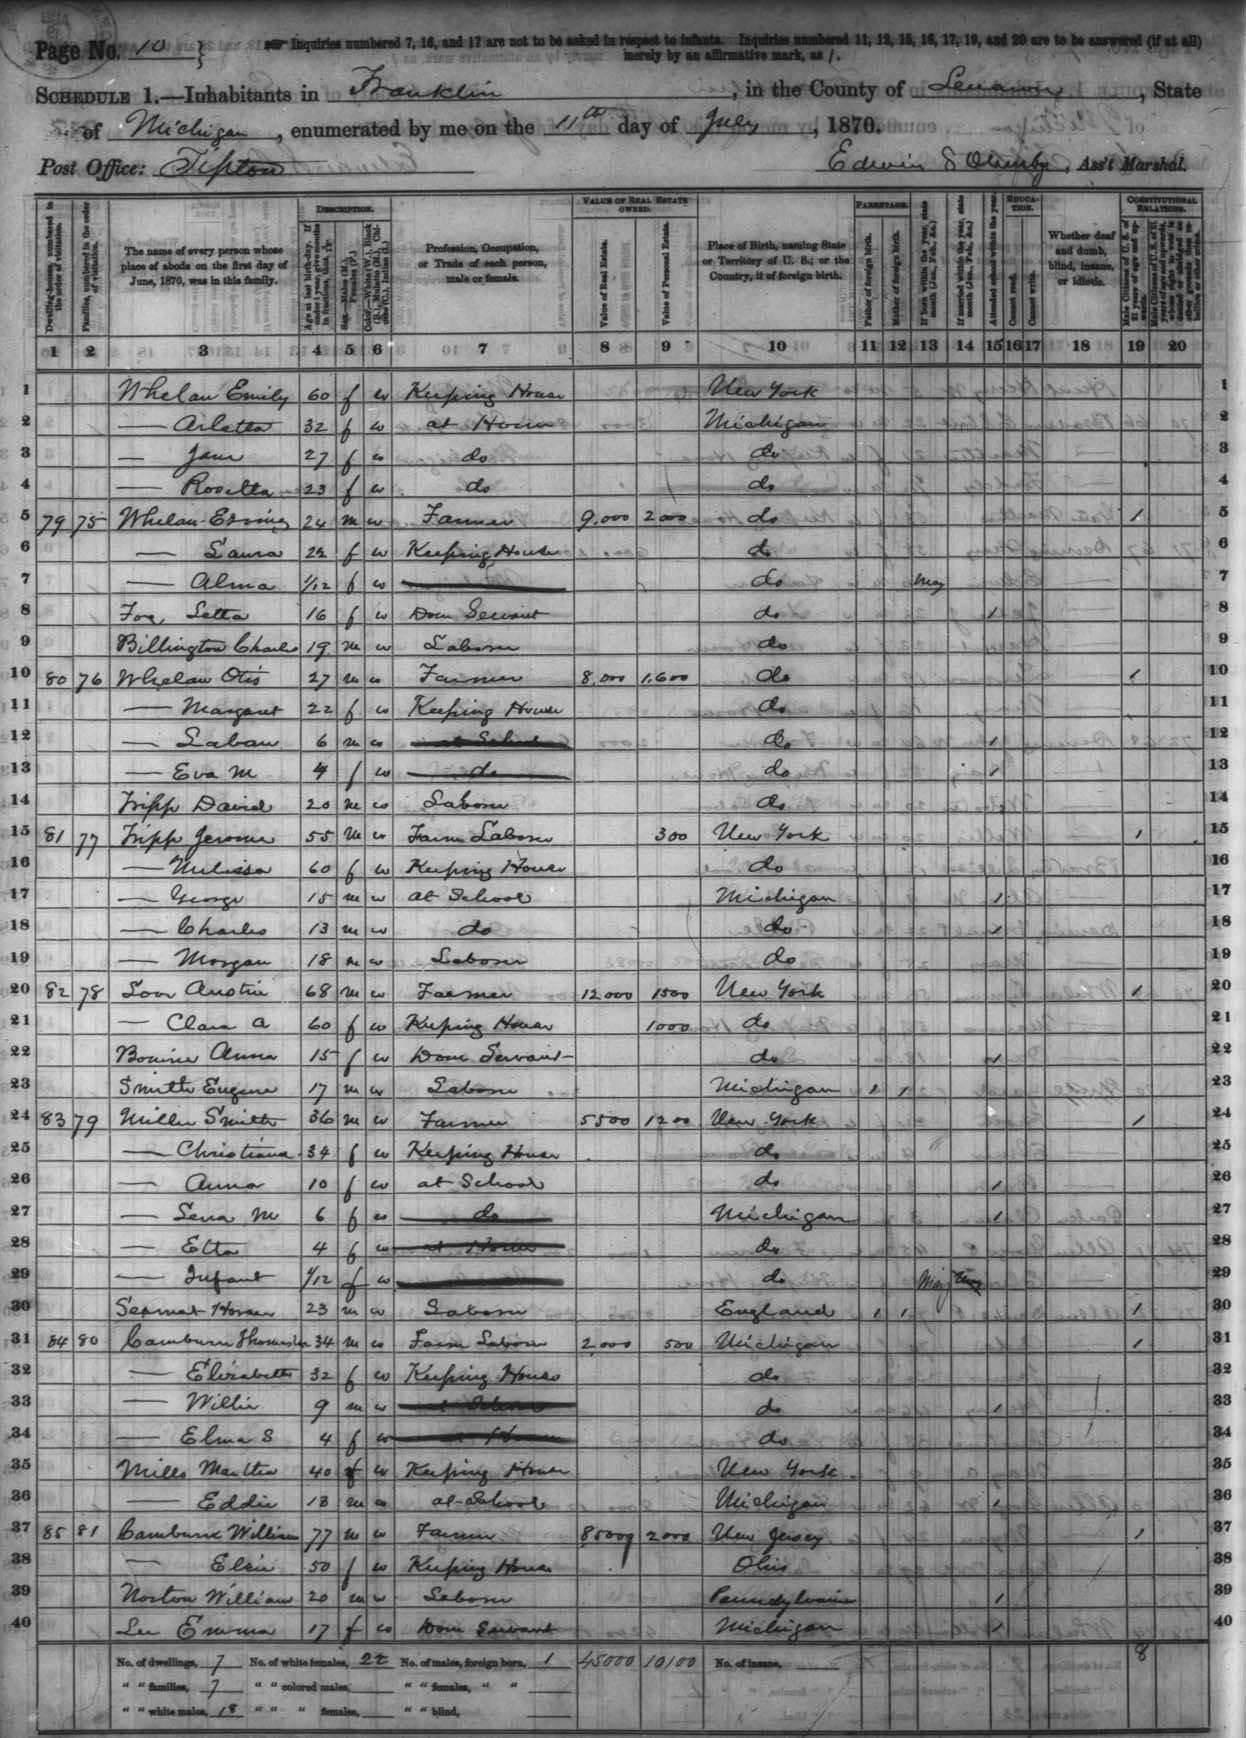 Page No. 10 } Inquiries numbered 7, 16, and 17 are not to be asked in respect to infants. Inquiries numbered 11, 12, 15, 16, 17, 19, and 20 are to be answered (if at all)
merely by an affirmative mark, as /.
SCHEDULE 1.—Inhabitants in Franklin, in the County of Lenawee, State
of Michigan, enumerated by me on the 11th day of July, 1870.
Post Office: Tipton Edwin S, Ass't Marshal.
DESCRIPTION. VALUE OF REAL ESTATE OWNED. PARENTAGE. EDUCATION. CONSTITUTIONAL RELATIONS.
Dwelling-houses, numbered in the order of visitation.
Families, numbered in the order of visitation.
The name of every person whose place of abode on the first day of June, 1870, was in this family.
Age at last birth-day. If under 1 year, give months in fractions, thus,
Sex.—Males (M.), Females (F.)
Color.—White (W.), Black (B.), Mulatto (M.), Chinese (C.), Indian (I.)
Profession, Occupation, or Trade of each person, male or female.
Value of Real Estate.
Value of Personal Estate.
Place of Birth, naming State or Territory of U. S.; or the Country, if of foreign birth.
Father of foreign birth.
Mother of foreign birth.
If born within the year, state month (Jan., Feb., &c.)
If married within the year, state month (Jan., Feb., &c.)
Attended school within the year.
Cannot read.
Cannot write.
Whether deaf and dumb, blind, insane, or idiotic.
Male Citizens of U. S. of 21 years of age and upwards.
1 2 3 4 5 6 7 8 9 10 11 12 13 14 15 16 17 18 19 20
1 Whelan Emily 60 f w Keeping House New York 1
2 — Arletta 32 f w at Home Michigan 2
3 — Jane 27 f w do do 3
4 — Rosetta 23 f w do do 4
5 79 75 Whelan Erving 24 m w Farmer 9,000 2000 do 1 5
6 — Laura 22 f w Keeping House do 6
7 — Alma 1/12 f w do May 7
8 Fox Letta 16 f w Dom Servant do 1 8
9 Billington Charles 19 m w Laborer do 9
10 80 76 Whelan Otis 27 m w Farmer 8,000 1,600 do 1 10
11 — Margaret 22 f w Keeping House do 11
12 — Laban 6 m w at School do 1 12
13 — Eva M 4 f w do do 1 13
14 Tripp David 20 m w Laborer do 14
15 81 77 Tripp Jerome 55 m w Farm Laborer 300 New York 1 15
16 — Melissa 60 f w Keeping House do 16
17 — George 15 m w at School Michigan 1 17
18 — Charles 13 m w do do 1 18
19 — Morgan 18 m w Laborer do 19
20 82 78 Low Austin 68 m w Farmer 12000 1500 New York 1 20
21 — Clara A 60 f w Keeping House 1000 do 21
22 Anna 15 f w Dom Servant do 1 22
23 Smith Eugene 17 m w Laborer Michigan 1 1 23
24 83 79 Miller Smith 36 m w Farmer 5500 1200 New York 1 24
25 — Christiana 34 f w Keeping House do 25
26 — Anna 10 f w at School do 1 26
27 — Lena M 6 f w do Michigan 1 27
28 — Etta 4 f w at Home do 28
29 — Infant 1/12 f w do May 29
30 23 m w Laborer England 1 1 1 30
31 84 80 Camburn 34 m w Farm Laborer 2,000 500 Michigan 1 31
32 — Elizabeth 32 f w Keeping House do 32
33 — Willie 9 m w at School do 1 33
34 — Elma S 4 f w at Home do 34
35 Mills Martha 40 f w Keeping House New York 35
36 — Eddie 13 m w at School Michigan 1 36
37 85 81 Camburn William 77 m w Farmer 8500 2000 New Jersey 1 37
38 — 50 f w Keeping House Ohio 38
39 Norton William 20 m w Laborer Pennsylvania 1 39
40 Lee Emma 17 f w Dom Servant Michigan 1 40
No. of dwellings, 7 No. of white females, 22 No. of males, foreign born, 1 45000 10100 No. of insane, 8
" " families, 7 " " colored males, " " females, " "
" " white males, 18 " " " females, " " blind,